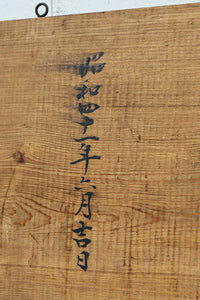 昭和四十一年六月吉日